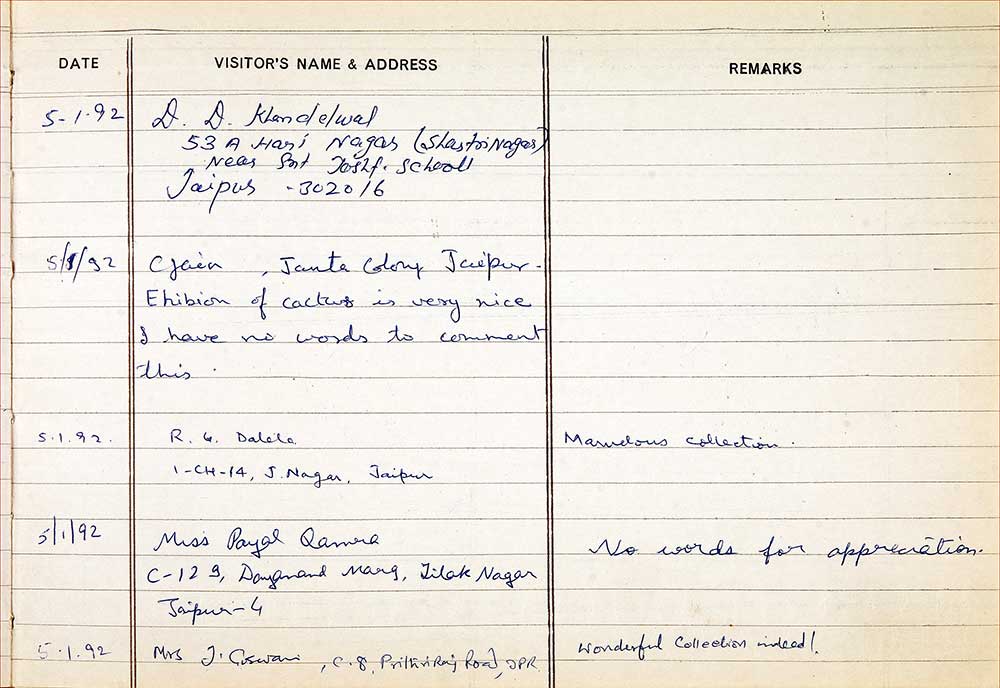 DATE VISITOR'S NAME & ADDRESS REMARKS
5-1-92 D. D. Khandelwal
53 A Hari Nagar (Shastri Nagar)
Near Smt School
Jaipur - 302016
5/1/92 C Jain, Janta Colony Jaipur.
Ehibion of cactus is very nice
I have no words to comment
this.
5.1.92. R. G. Dalela Marvelous collection.
1-CH-14, J. Nagar, Jaipur
5/1/92 Miss Payal No words for appreciation.
C-129, Dayanand Marg, Tilak Nagar
Jaipur-4
5.1.92 Mrs J. Goswami, C-8, Prithviraj Road, JPR Wonderful Collection indeed!